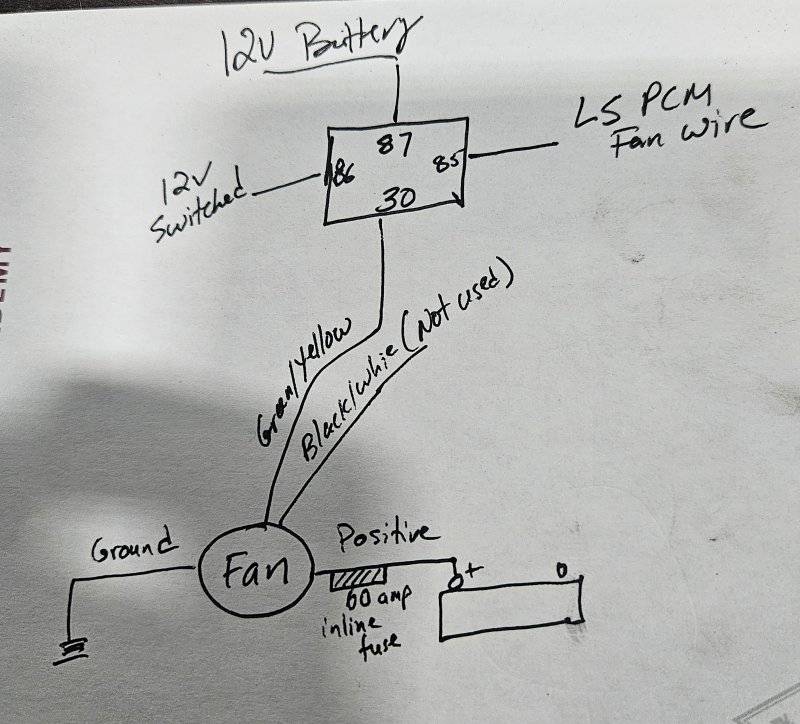 12V Battery
LS PCM
Fan wire
12V
Switched
87
86
85
30
Green/Yellow
Black/whie (Not used)
Ground
Fan
Positive
60 amp
inline
fuse
+
0